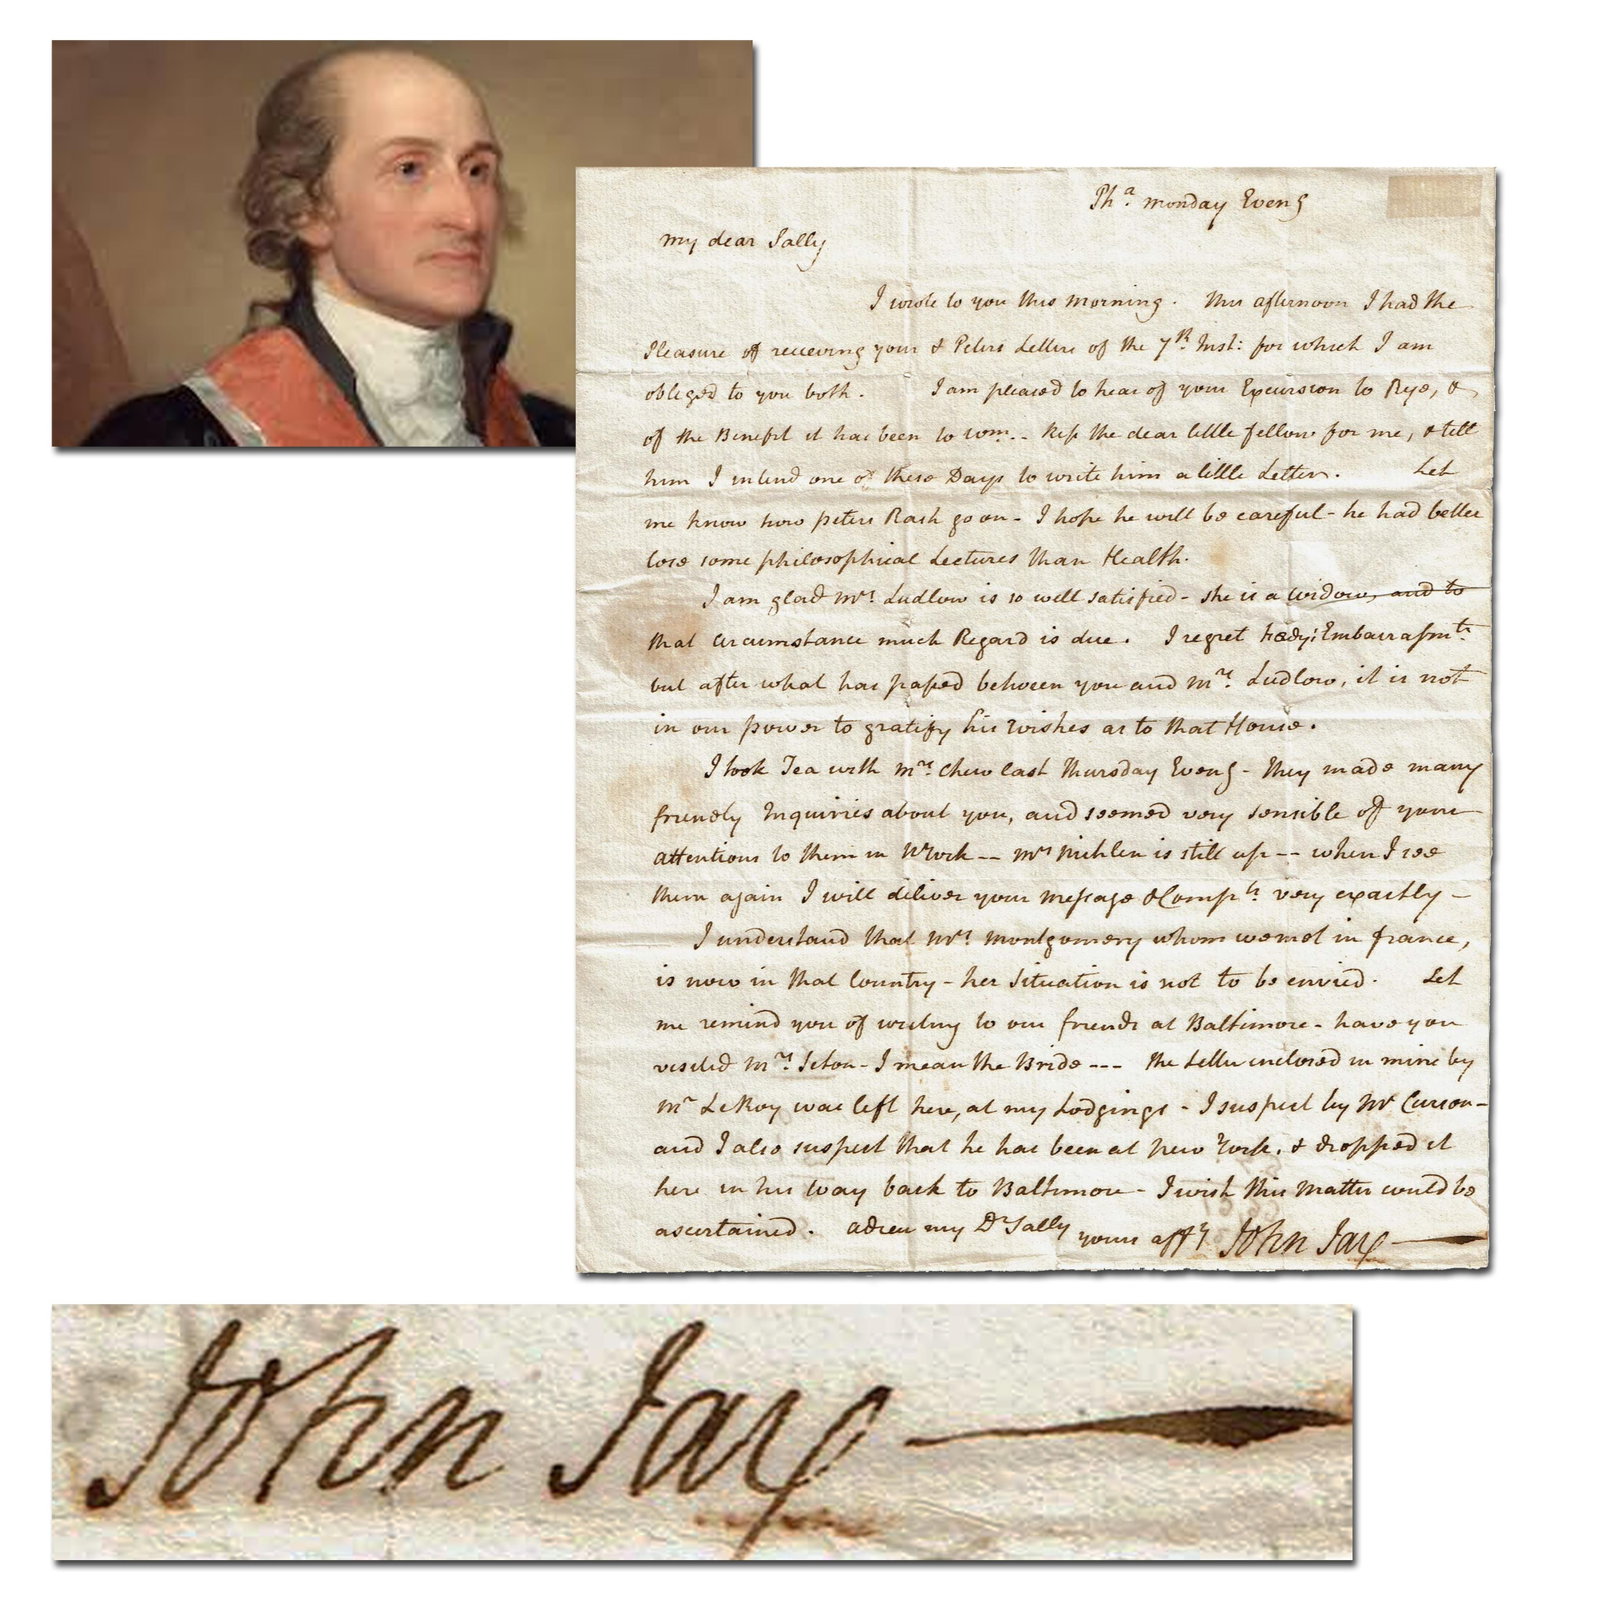 Ph.ª monday Eveng
my dear Sally
I wrote to you this morning. This afternoon I had the
Pleasure of receiving your & Peters Letters of the 7th Inst: for which I am
obliged to you both. I am pleased to hear of your Excursion to Rye, &
of the Benefit it has been to Wm.. Kiss the dear little fellow for me, & tell
him I intend one of these Days to write him a little Letter. Let
me know how peters Rash go on - I hope he will be careful - he had better
lose some philosophical Lectures than Health.
I am glad Mrs. Ludlow is so well satisfied - she is a widow, and to
that circumstance much Regard is due. I regret Embarrassmts.
but after what has passed between you and Mrs. Ludlow, it is not
in our power to gratify his wishes as to that House.
I took Tea with Mrs. Chew last Thursday Eveng - they made many
friendly Inquiries about you, and seemed very sensible of your
attentions to them in NYork -- Mrs is still up -- when I see
them again I will deliver your Message & Compts. very exactly -
I understand that Mrs. Montgomery whom we met in france,
is now in that Country - her Situation is not to be envied. Let
me remind you of writing to our friends at Baltimore - have you
visited Mrs. Seton - I mean the Bride --- the Letter enclosed in mine by
Mr LeRoy was left here, at my Lodgings - I suspect by Mr Curson -
and I also suspect that he has been at New York, & dropped it
here in his Way back to Baltimore - I wish this Matter could be
ascertained. adieu my Dr Sally yours affy John Jay
John Jay